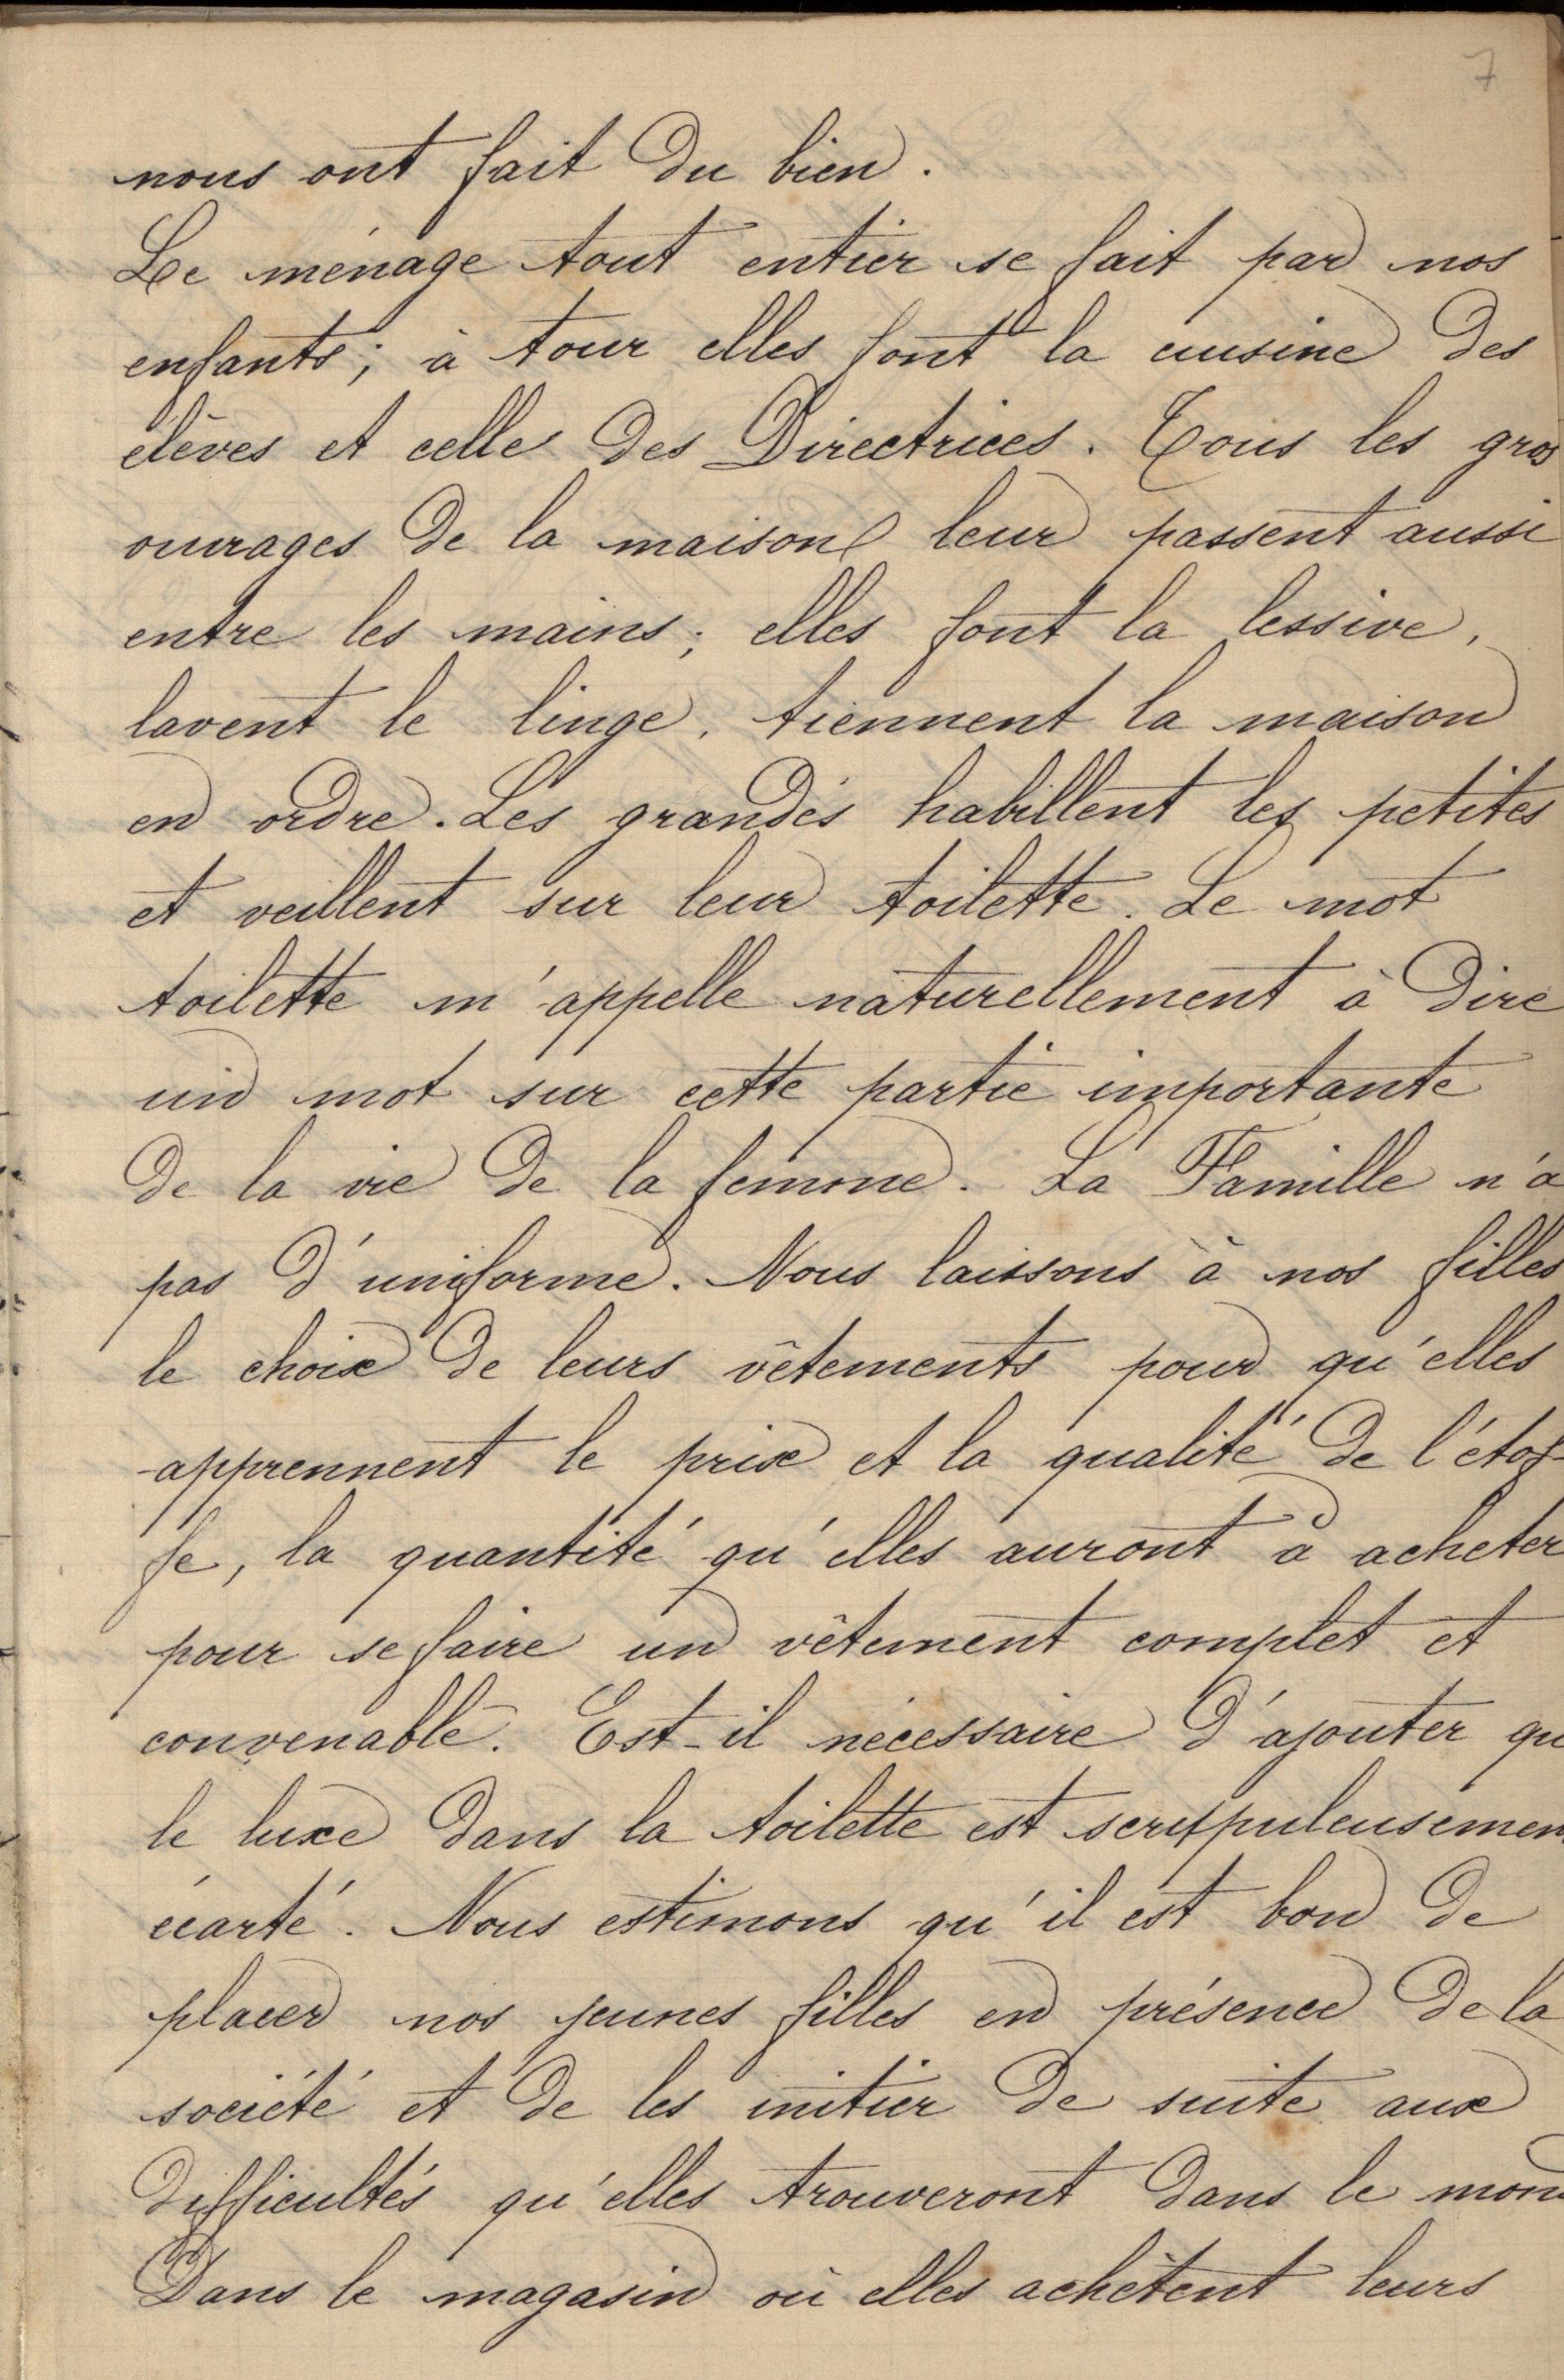 7
nous ont fait du bien.
Le ménage tout entier se fait par nos
enfants; à tour elles font la cuisine des
élèves et celle des Directrices. Tous les gros
ouvrages de la maison leur passent aussi
entre les mains; elles font la lessive,
lavent le linge, tiennent la maison
en ordre. Les grandes habillent les petites
et veillent sur leur toilette. Le mot
toilette m'appelle naturellement à dire
un mot sur cette partie importante
de la vie de la femme. La Famille n'a
pas d'uniforme. Nous laissons à nos filles
le choix de leurs vêtements pour qu'elles
apprennent le prix et la qualité de l'étof-
fe, la quantité qu'elles auront à acheter
pour se faire un vêtement complet et
convenable. Est-il nécessaire d'ajouter qu
le luxe dans la toilette est scrupuleusemen
écarté. Nous estimons qu'il est bon de
placer nos jeunes filles en présence de la
société et de les initier de suite aux
difficultés qu'elles trouveront dans le mon
Dans le magasin où elles achètent leurs